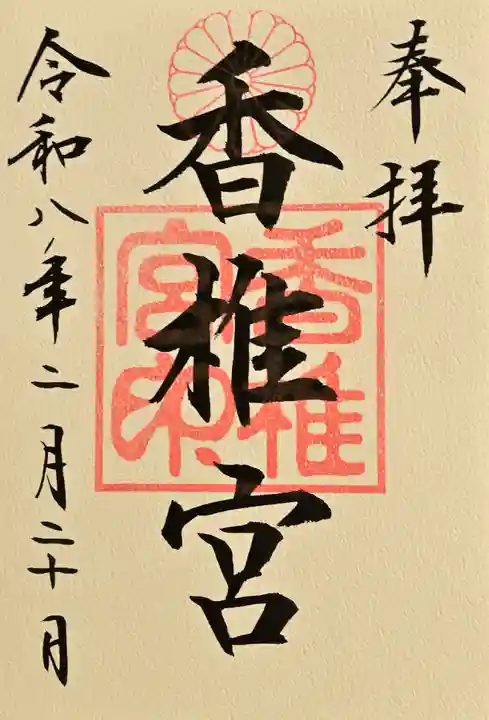 奉拝
香椎宮
香椎宮印
令和八年二月二十日